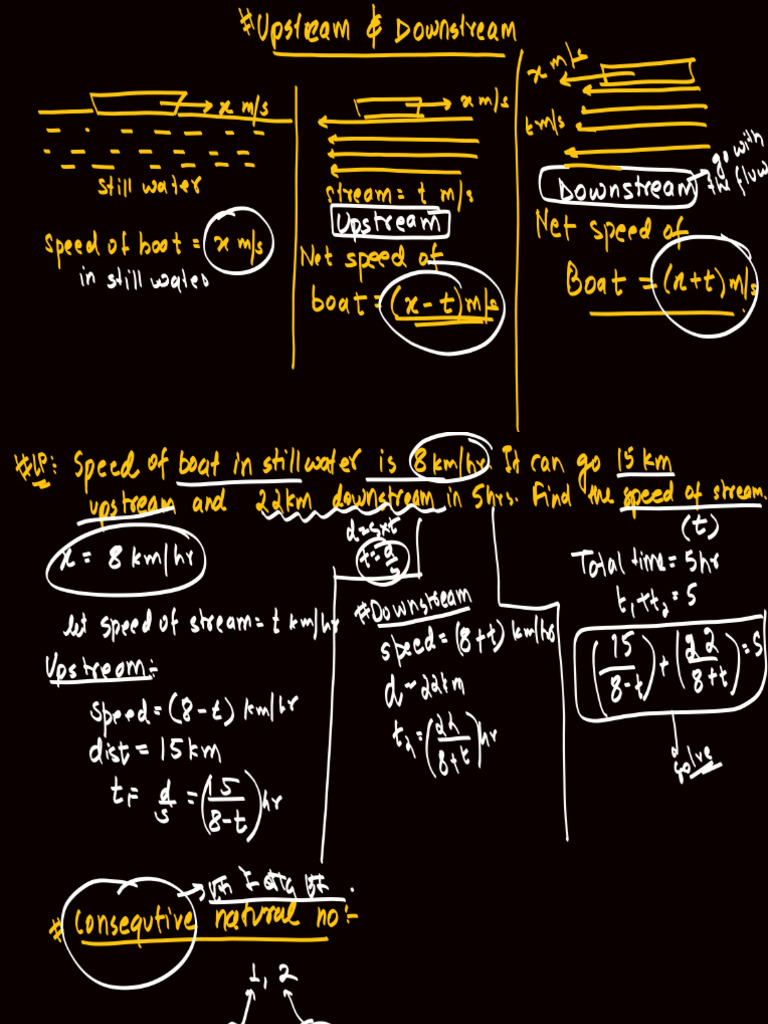 #Upstream & Downstream
x m/s
still water
speed of boat = x m/s
in still water
x m/s
stream = t m/s
Upstream
Net speed of
boat = (x - t) m/s
x m/s
t m/s
Downstream
go with
the flow
Net speed of
Boat = (x+t) m/s
#LP: Speed of boat in still water is 8 km/hr. It can go 15 km
upstream and 22km downstream in 5hrs. Find the speed of stream.
(t)
x = 8 km/hr
let speed of stream = t km/hr
Upstream:-
Speed = (8-t) km/hr
dist = 15 km
t₁ = d/s = (15/8-t) hr
d = s×t
t = d/s
#Downstream
speed = (8+t) km/hr
d = 22km
t₂ = (22/8+t) hr
Total time = 5hr
t₁+t₂ = 5
(15/8-t) + (22/8+t) = 5
solve
# Consequtive natural no:-
1, 2